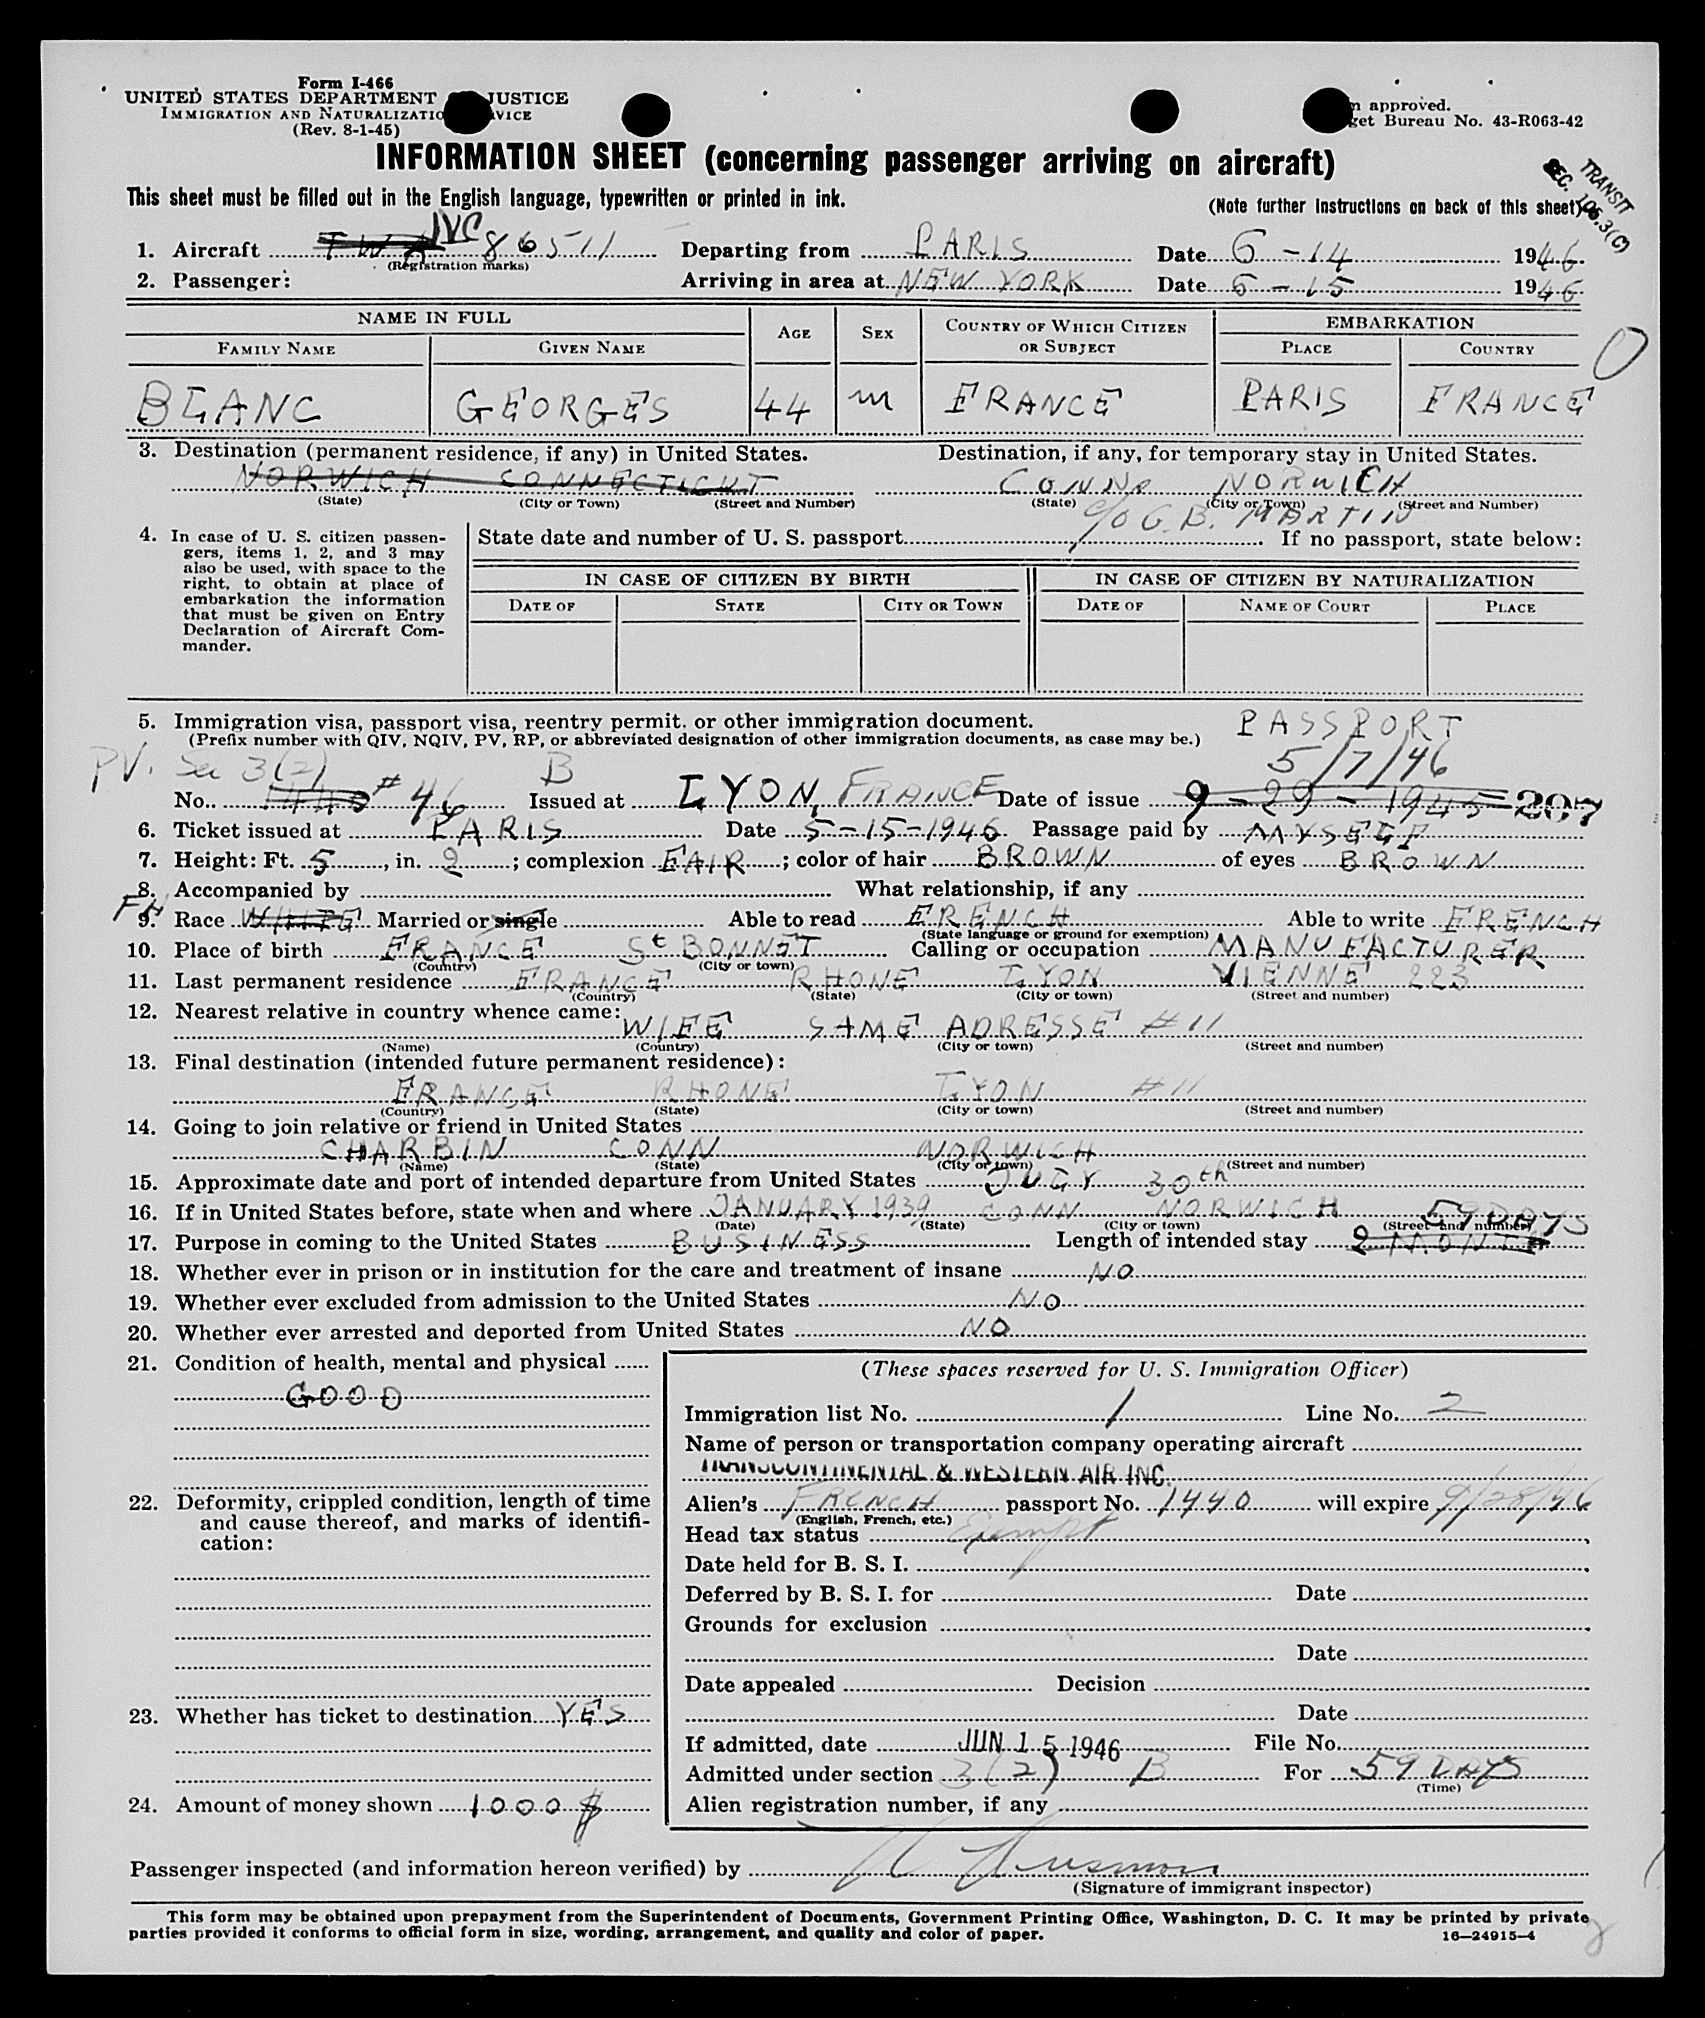 Form I-466
UNITED STATES DEPARTMENT JUSTICE
IMMIGRATION AND NATURALIZATIO VICE
(Rev. 8-1-45)
n approved.
get Bureau No. 43-R063-42
INFORMATION SHEET (concerning passenger arriving on aircraft)
TRANSIT
SEC. 105.3(C)
This sheet must be filled out in the English language, typewritten or printed in ink.
(Note further instructions on back of this sheet)
1. Aircraft TWA NC 86511 Departing from PARIS Date 6-14 1946
(Registration marks)
2. Passenger: Arriving in area at NEW YORK Date 6-15 1946
NAME IN FULL AGE SEX COUNTRY OF WHICH CITIZEN OR SUBJECT EMBARKATION
FAMILY NAME GIVEN NAME PLACE COUNTRY
BLANC GEORGES 44 M FRANCE PARIS FRANCE
3. Destination (permanent residence, if any) in United States. Destination, if any, for temporary stay in United States.
NORWICH CONNECTICUT CONN NORWICH
(State) (City or Town) (Street and Number) (State) (City or Town) (Street and Number)
c/o G.B. MARTIN
4. In case of U. S. citizen passen-
gers, items 1, 2, and 3 may
also be used, with space to the
right, to obtain at place of
embarkation the information
that must be given on Entry
Declaration of Aircraft Com-
mander.
State date and number of U. S. passport / If no passport, state below:
IN CASE OF CITIZEN BY BIRTH IN CASE OF CITIZEN BY NATURALIZATION
DATE OF STATE CITY OR TOWN DATE OF NAME OF COURT PLACE
5. Immigration visa, passport visa, reentry permit. or other immigration document. PASSPORT
(Prefix number with QIV, NQIV, PV, RP, or abbreviated designation of other immigration documents, as case may be.)
PV. Sec 3(2) B 5/7/46
No. 1440 #46 Issued at LYON, FRANCE Date of issue 9-29-1945 207
6. Ticket issued at PARIS Date 5-15-1946 Passage paid by MYSELF
7. Height: Ft. 5, in. 2; complexion FAIR; color of hair BROWN of eyes BROWN
8. Accompanied by What relationship, if any
FH
9. Race WHITE Married or single Able to read FRENCH Able to write FRENCH
(State language or ground for exemption)
10. Place of birth FRANCE St BONNET Calling or occupation MANUFACTURER
(Country) (City or town)
11. Last permanent residence FRANCE RHONE LYON VIENNE 223
(Country) (State) (City or town) (Street and number)
12. Nearest relative in country whence came:
WIFE SAME ADRESSE #11
(Name) (Country) (City or town) (Street and number)
13. Final destination (intended future permanent residence):
FRANCE RHONE LYON #11
(Country) (State) (City or town) (Street and number)
14. Going to join relative or friend in United States
CHARBIN CONN NORWICH
(Name) (State) (City or town) (Street and number)
15. Approximate date and port of intended departure from United States JULY 30th
16. If in United States before, state when and where JANUARY 1939 CONN NORWICH
(Date) (State) (City or town) (Street and number)
59 DAYS
17. Purpose in coming to the United States BUSINESS Length of intended stay 2 MONTH
18. Whether ever in prison or in institution for the care and treatment of insane NO
19. Whether ever excluded from admission to the United States NO
20. Whether ever arrested and deported from United States NO
21. Condition of health, mental and physical
GOOD
22. Deformity, crippled condition, length of time
and cause thereof, and marks of identifi-
cation:
23. Whether has ticket to destination YES
24. Amount of money shown 1000 $
(These spaces reserved for U. S. Immigration Officer)
Immigration list No. 1 Line No. 2
Name of person or transportation company operating aircraft
TRANSCONTINENTAL & WESTERN AIR INC.
Alien's FRENCH passport No. 1440 will expire 9/28/46
(English, French, etc.)
Head tax status Exempt
Date held for B. S. I.
Deferred by B. S. I. for Date
Grounds for exclusion
Date
Date appealed Decision
Date
If admitted, date JUN 15 1946 File No.
Admitted under section 3(2) B For 59 DAYS
(Time)
Alien registration number, if any
Passenger inspected (and information hereon verified) by
(Signature of immigrant inspector)
This form may be obtained upon prepayment from the Superintendent of Documents, Government Printing Office, Washington, D. C. It may be printed by private
parties provided it conforms to official form in size, wording, arrangement, and quality and color of paper.
16—24915-4